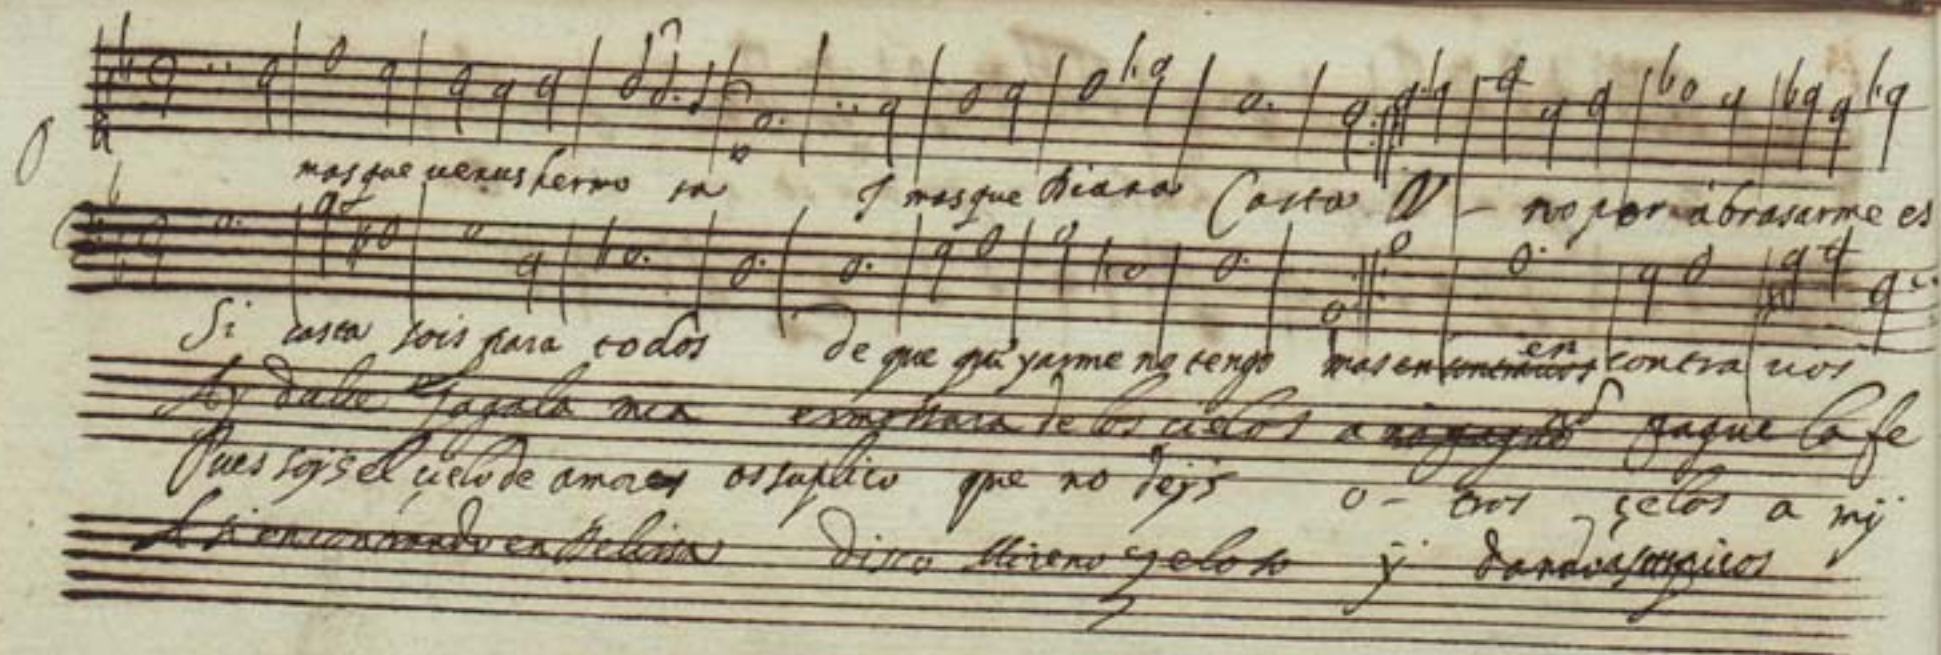 O mas que uenus hermo sa I mas que Diana Casta N - no por abrasarme es
Si casta sois para todos de que qui yarme no tengo mas en contrarios en contra rios
Ay dulce zagala mia de los cielos a pague la fe
Pues soys el cielo de amores os suplico que no deys o - tros çelos a mÿ
en Belisa dixo Mireno zeloso ÿ dando suspiros